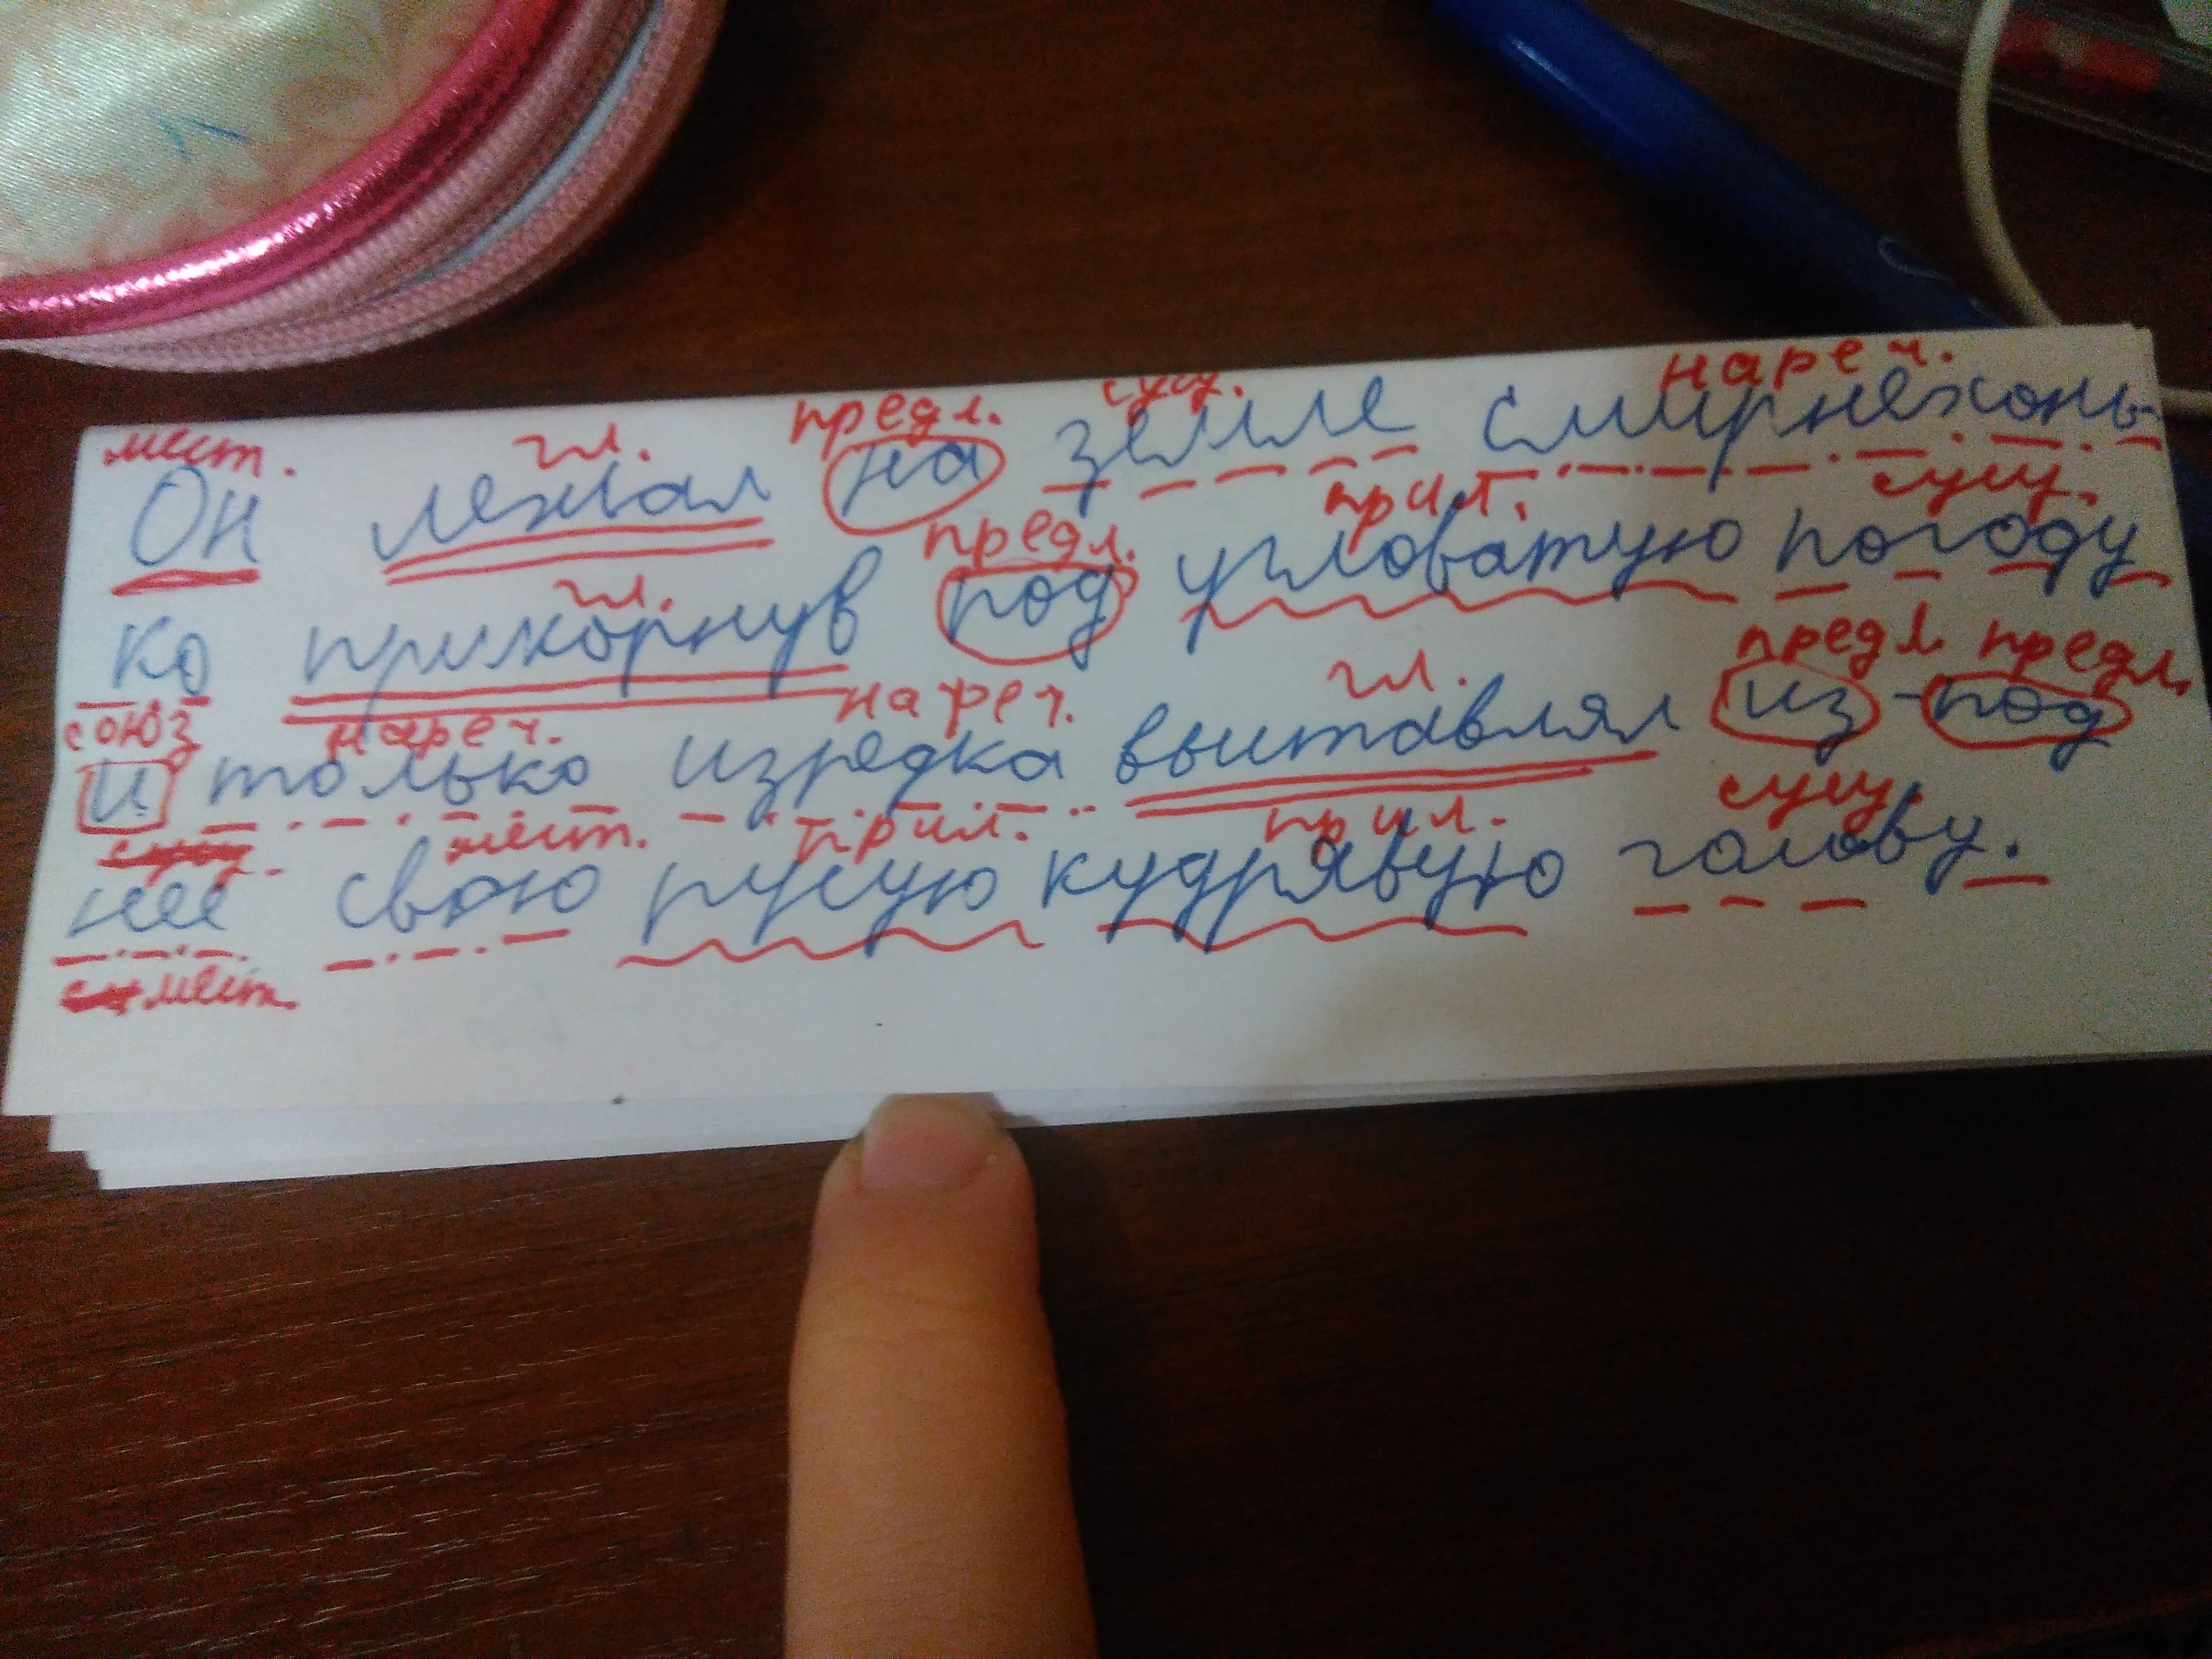 мест. гл. предл. сущ. нареч.
Он лежал на земле смирнехонь-
гл. предл. прил. сущ.
ко прикорнув под угловатую погоду
союз нареч. нареч. гл. предл. предл.
и только изредка выставлял из-под
мест. прил. прил. сущ.
нее свою русую кудрявую голову.
мест.